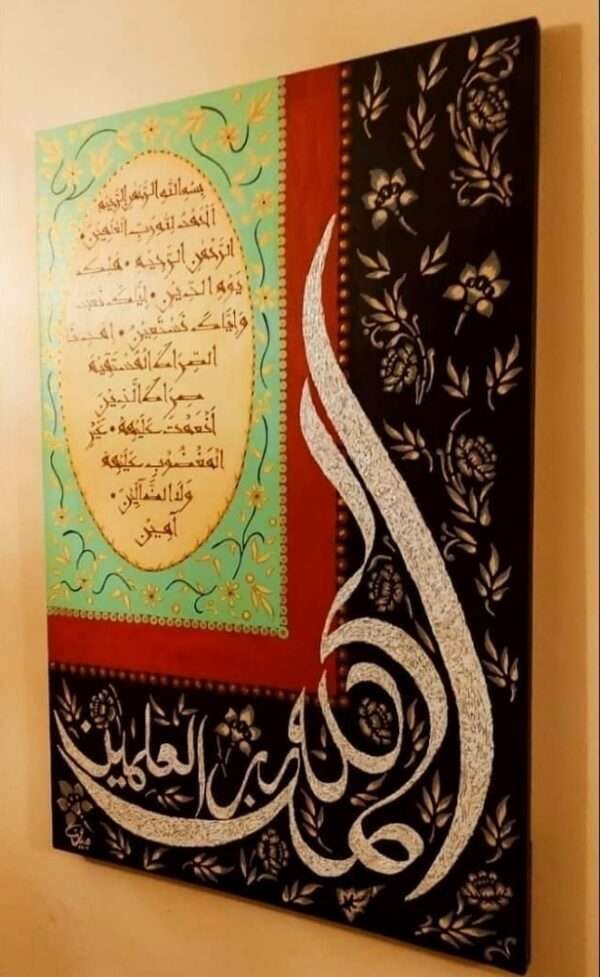 بسم الله الرحمن الرحيم
الحمد لله رب العلمين •
الرحمن الرحيم • ملك
يوم الدين • إياك نعبد
وإياك نستعين • اهدنا
الصراط المستقيم
صراط الذين
أنعمت عليهم • غير
المغضوب عليهم
ولا الضالين •
آمين
الحمد لله رب العلمين